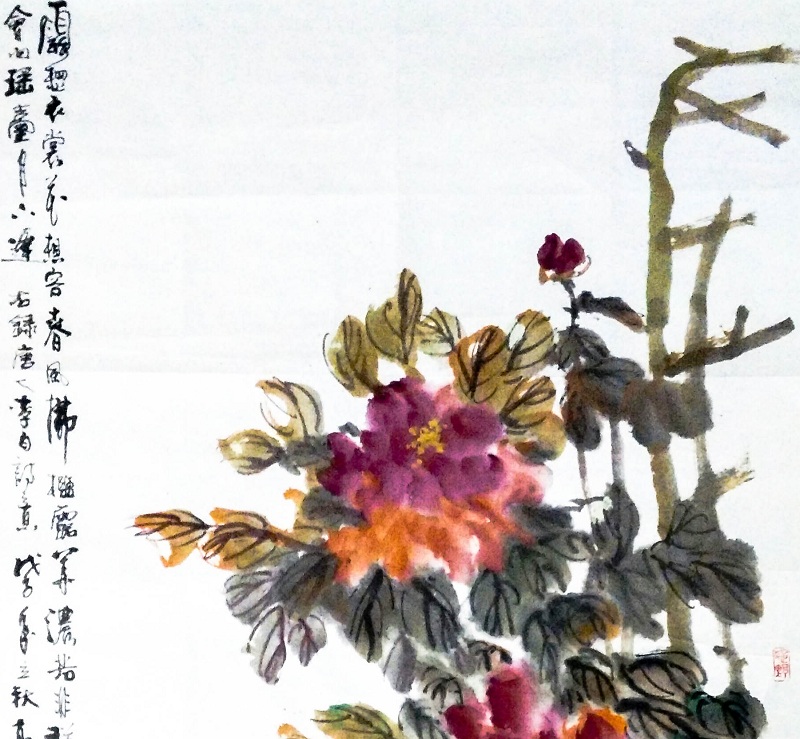 想衣裳花想容春風拂檻露華濃若非
會向瑤臺月下逢 右録唐人李白詩意 戊子年立秋